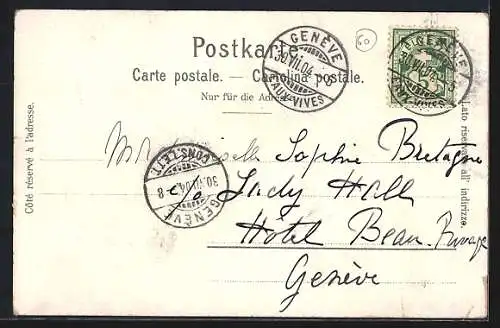 Postkarte.
Carte postale. — Cartolina postale.
Nur für die Adresse.
60
GENÈVE
30.VII.04.-8
EAUX-VIVES
GENÈVE
30.VII.04.-8
EAUX-VIVES
Côté réservé à l'adresse.
Lato riservato all' indirizzo.
Mademoiselle Sophie Bretagne
c/o Lady Hall
Hôtel Beau-Rivage
Genève
GENÈVE
30.VII.04.-8
CONS.LETT.